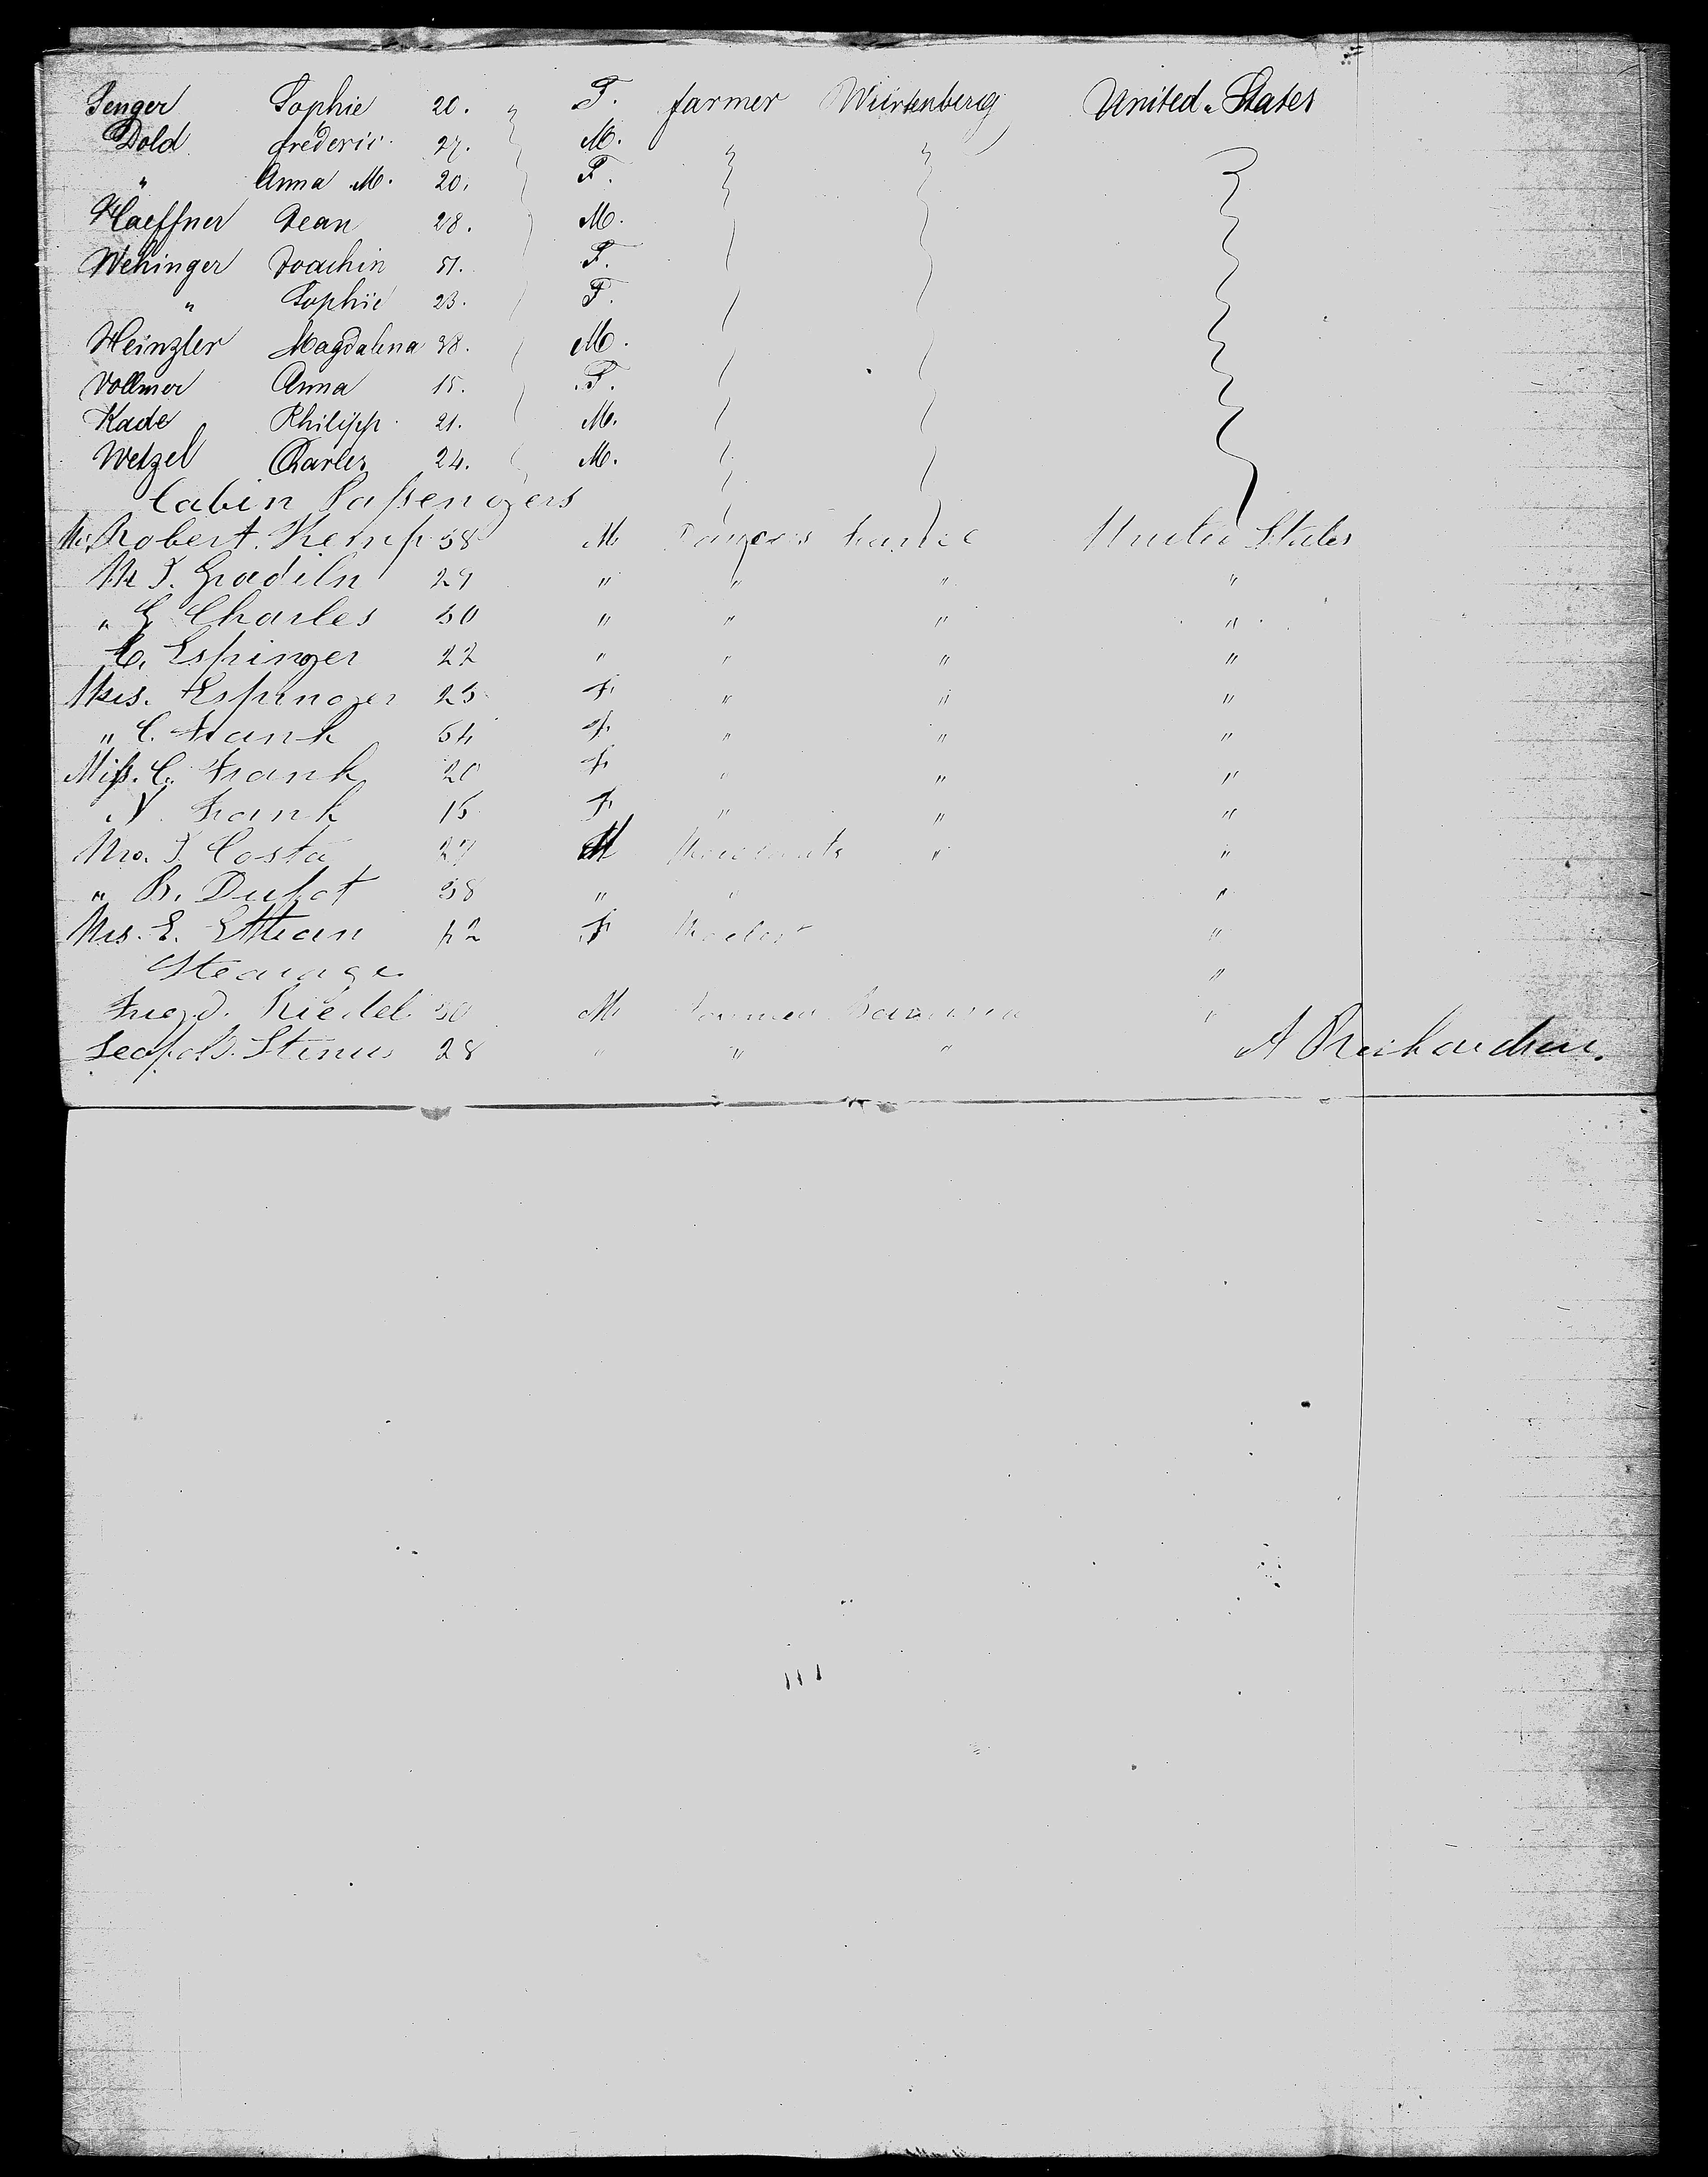 Senger Sophie 20. " F. farmer Würtenberg United States
Dold frederic 27. M.
" Anna M. 20. F.
Haeffner Jean 28. M.
Wehinger Joachin 51. F.
" Sophie 23. F.
Heinzler Magdalena 38. M.
Vollmer Anna 15. F.
Kade Philipp 21. M.
Wetzel Charles 24. M.
Cabin Passengers
Mr. Robert Kemp 58 M United States
Mr J. 29 " " " "
" G Charles 50 " " " "
C. Espinger 22 " " " "
Mrs. Espinger 25 F " " "
" C. Frank 54 F " " "
Miss. C. Frank 20 F " " "
N. Frank 15 F " " "
J. Costa 27 M " "
" B. 38 " " "
Mrs. E. F "
Stearage "
Riedel 30 M "
Leopold. 28 " " "